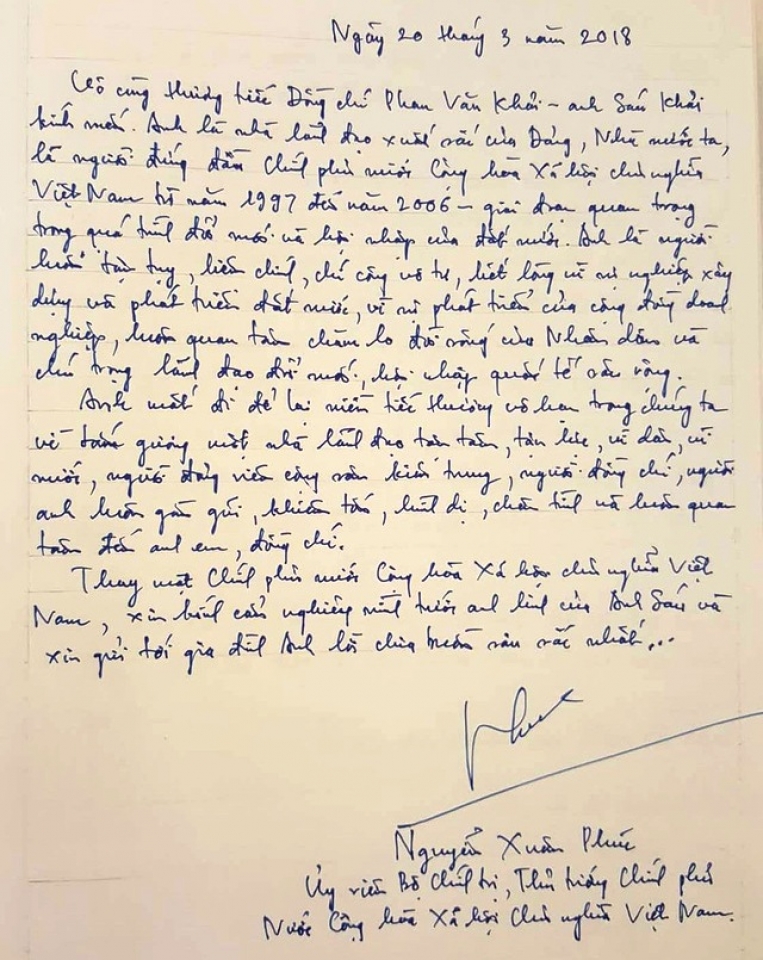 Ngày 20 tháng 3 năm 2018
Vô cùng thương tiếc Đồng chí Phan Văn Khải - anh Sáu Khải
kính mến. Anh là nhà lãnh đạo xuất sắc của Đảng, Nhà nước ta,
là người đứng đầu Chính phủ nước Cộng hòa Xã hội chủ nghĩa
Việt Nam từ năm 1997 đến năm 2006 - giai đoạn quan trọng
trong quá trình đổi mới và hội nhập của đất nước. Anh là người
luôn tận tụy, liêm chính, chí công vô tư, hết lòng vì sự nghiệp xây
dựng và phát triển đất nước, vì sự phát triển của cộng đồng doanh
nghiệp, luôn quan tâm chăm lo đời sống của Nhân dân và
chú trọng lãnh đạo đổi mới, hội nhập quốc tế sâu rộng.
Anh mất đi để lại niềm tiếc thương vô hạn trong chúng ta
về tấm gương một nhà lãnh đạo tận tâm, tận lực, vì dân, vì
nước, người đảng viên cộng sản kiên trung, người đồng chí, người
anh luôn gần gũi, khiêm tốn, bình dị, chân tình và luôn quan
tâm đến anh em, đồng chí.
Thay mặt Chính phủ nước Cộng hòa Xã hội chủ nghĩa Việt
Nam, xin kính cẩn nghiêng mình trước anh linh của Anh Sáu và
xin gửi tới gia đình Anh lời chia buồn sâu sắc nhất...
Phúc
Nguyễn Xuân Phúc
Ủy viên Bộ Chính trị, Thủ tướng Chính phủ
Nước Cộng hòa Xã hội Chủ nghĩa Việt Nam.